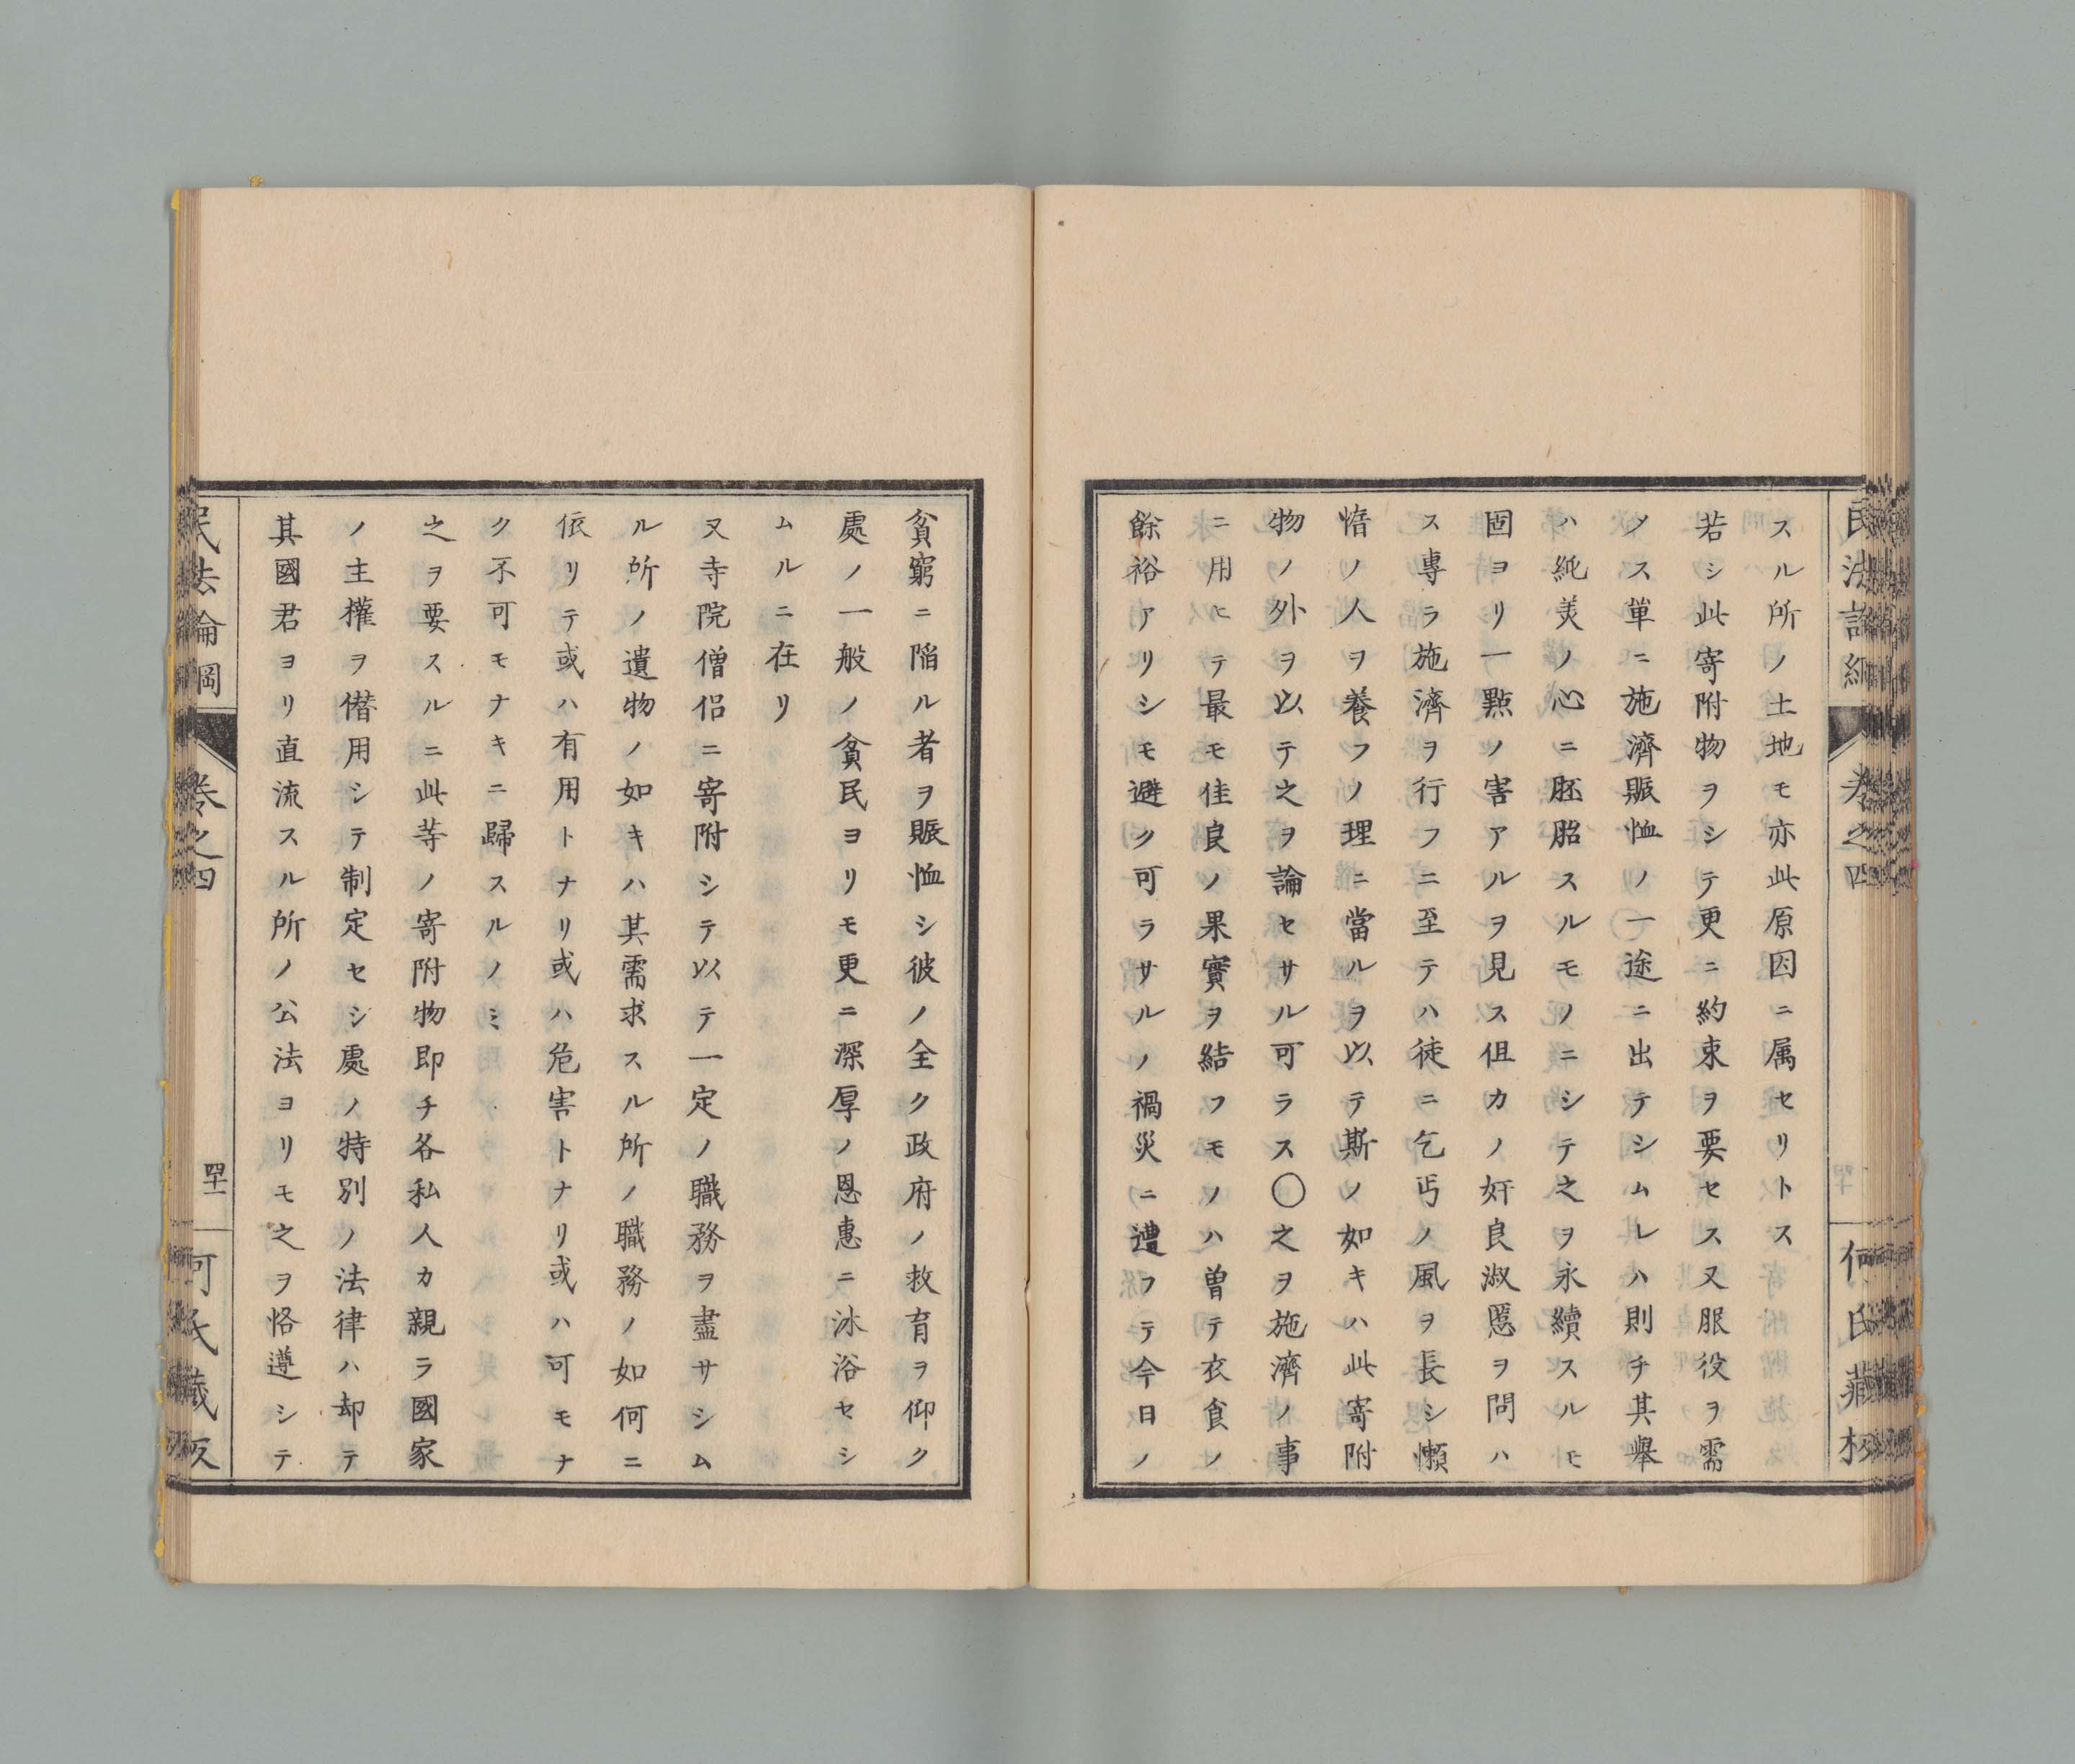 民法論綱
卷之四
何氏藏板
スル所ノ土地モ亦此原因ニ属セリトス
若シ此寄附物ヲシテ更ニ約束ヲ要セス又服役ヲ需
メス單ニ施濟賑恤ノ一途ニ出テシムレハ則チ其擧
ハ純美ノ心ニ胚胎スルモノニシテ之ヲ永續スルモ
固ヨリ一點ノ害アルヲ見ス但カノ奸良淑慝ヲ問ハ
ス專ラ施濟ヲ行フニ至テハ徒ニ乞丐ノ風ヲ長シ懶
惰ノ人ヲ養フノ理ニ當ルヲ以テ斯ノ如キハ此寄附
物ノ外ヲ以テ之ヲ論セサル可ラス〇之ヲ施濟ノ事
ニ用ヒテ最モ佳良ノ果實ヲ結フモノハ曽テ衣食ノ
餘裕アリシモ避ク可ラサルノ禍災ニ遭フテ今日ノ
貧窮ニ陷ル者ヲ賑恤シ彼ノ全ク政府ノ救育ヲ仰ク
處ノ一般ノ貧民ヨリモ更ニ深厚ノ恩惠ニ沐浴セシ
ムルニ在リ
又寺院僧侶ニ寄附シテ以テ一定ノ職務ヲ盡サシム
ル所ノ遺物ノ如キハ其需求スル所ノ職務ノ如何ニ
依リテ或ハ有用トナリ或ハ危害トナリ或ハ可モナ
ク不可モナキニ歸スルノミ
之ヲ要スルニ此等ノ寄附物即チ各私人カ親ラ國家
ノ主權ヲ僭用シテ制定セシ處ノ特別ノ法律ハ却テ
其國君ヨリ直流スル所ノ公法ヨリモ之ヲ恪遵シテ
民法論綱
卷之四
四十一
何氏藏板